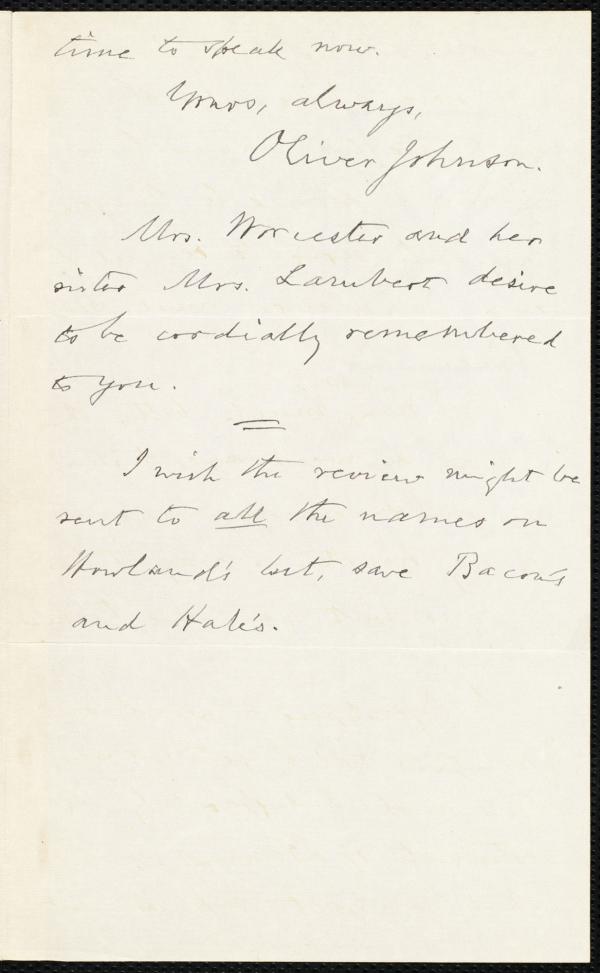 time to speak now.
Yours, always,
Oliver Johnson.
Mrs. Worcester and her
sister Mrs. Lambert desire
to be cordially remembered
to you.
I wish the review might be
sent to all the names on
Howland's list, save Bacon's
and Hale's.